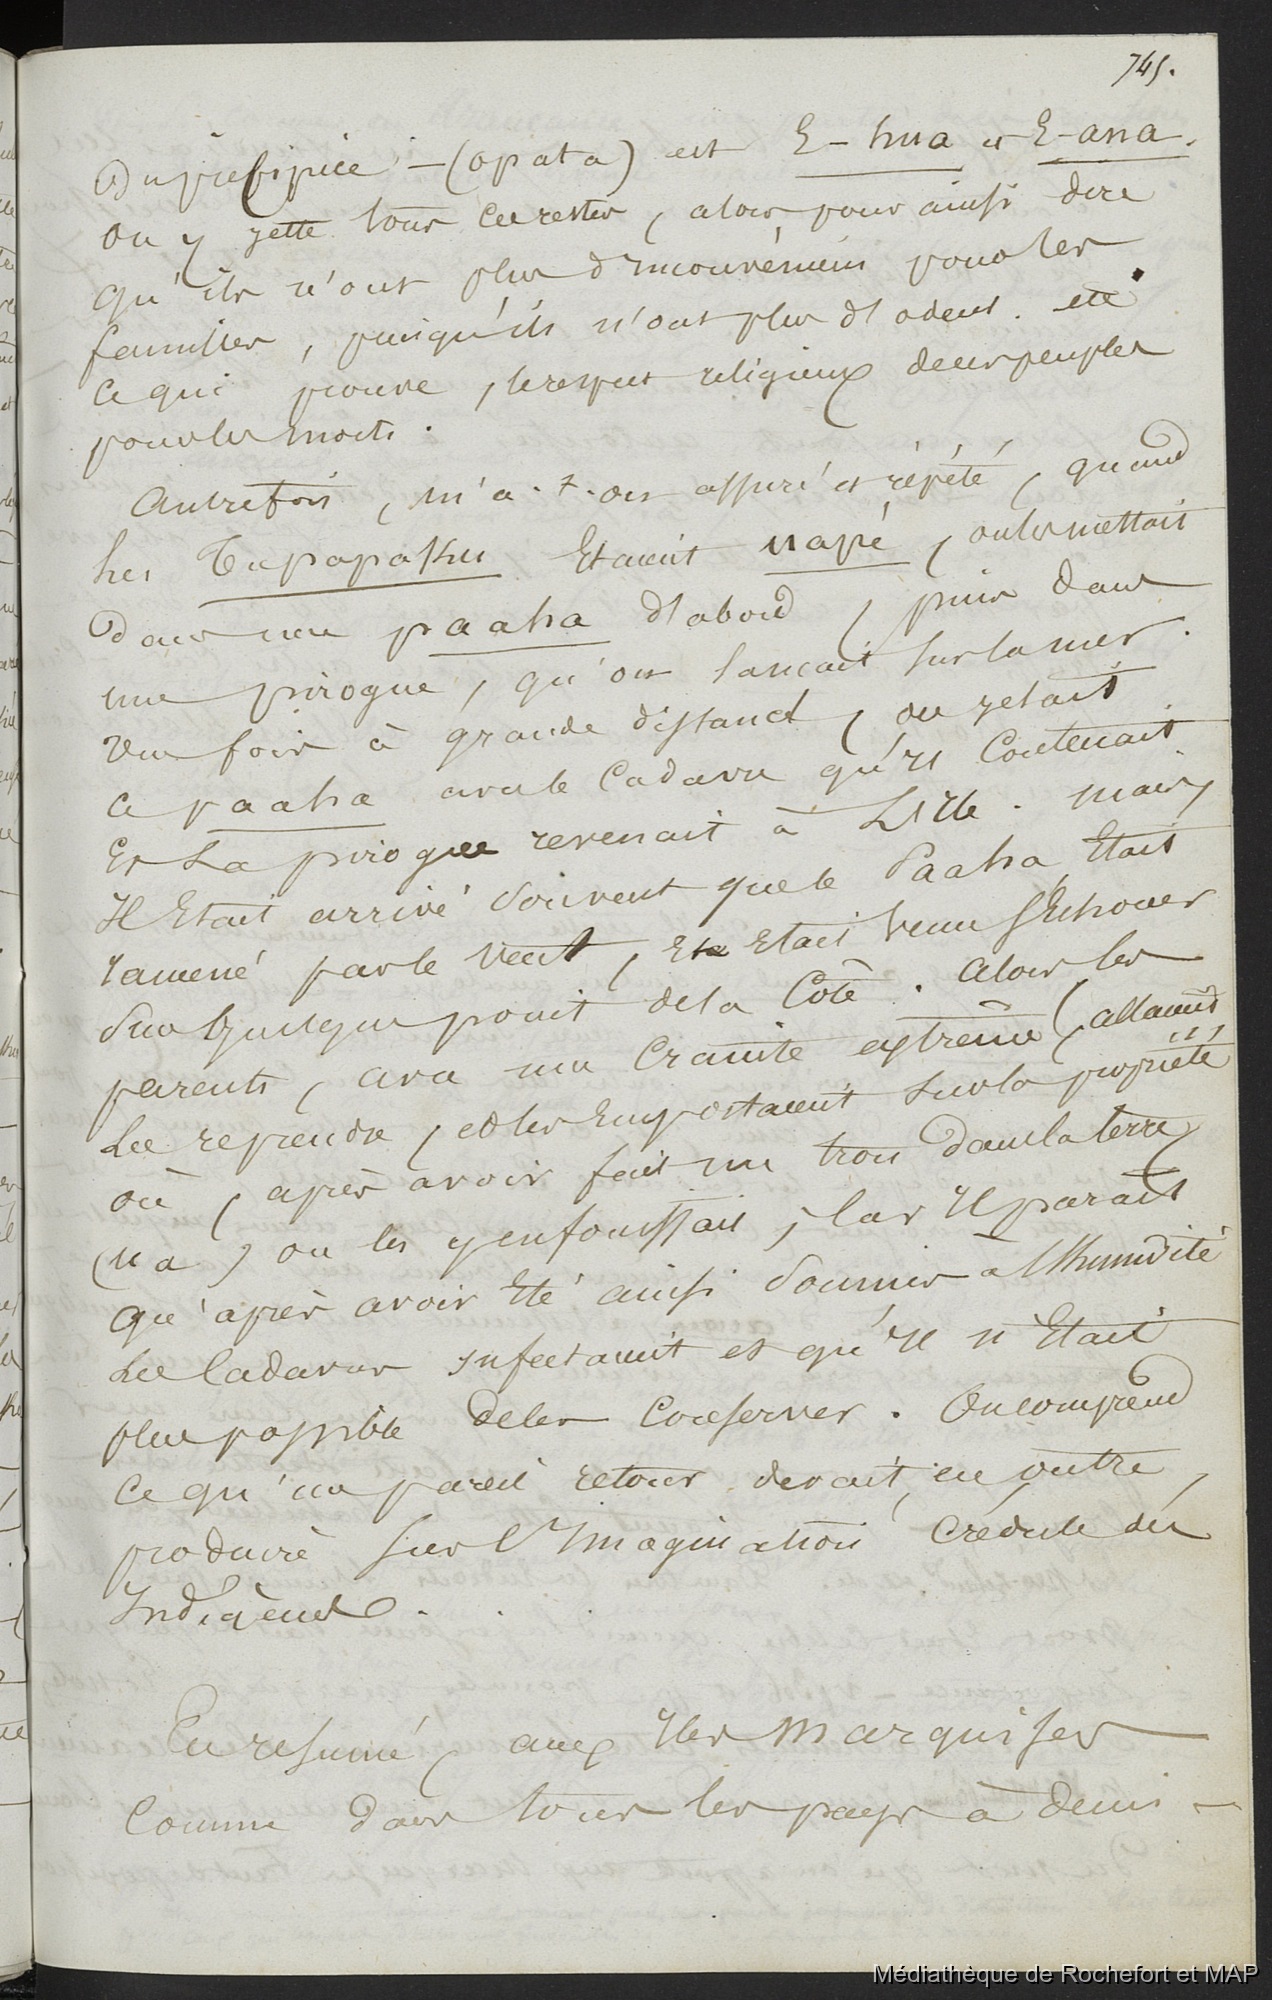 745.
Du précipice - (opata) est E-hua et E-ana.
on y jette tous ces restes, alors pour ainsi dire
qu'ils n'ont plus d'inconvéniens pour les
familles, puisqu'ils n'ont plus d'odeur. etc
Ce qui prouve, le respect religieux de ces peuples
pour les morts.
Autrefois, m'a-t-on assuré et répété, quand
les Tupapakuu Etaient napé, on les mettait
dans une paaha d'abord, puis dans
une pirogue, qu'on lançait sur la mer.
Une fois à grande distance, on jetait
ce paaha avec le Cadavre qu'il Contenait
Et La pirogue revenait à L'Ile. mais
Il Etait arrivé souvent que le Paaha Etait
ramené par le vent, Et Etait venu s'Echouer
sur quelque point de la Côte. alors les
parents, avec une Crainte extrême, allaient
Les reprendre, et les Emportaient sur la propriété
où, après avoir fait un trou dans la terre
(ua) on les y enfouissait, Car Il parait
qu'après avoir Eté ainsi soumis à l'humidité
Les Cadavres infectaient et qu'il n'Etait
plus possible de les Conserver. On comprend
Ce qu'un pareil retour devait, en outre,
produire sur l'Imagination Crédule des
Indigènes.
En resumé, aux Iles Marquises
Comme dans tous les pays à demi -
Médiathèque de Rochefort et MAP